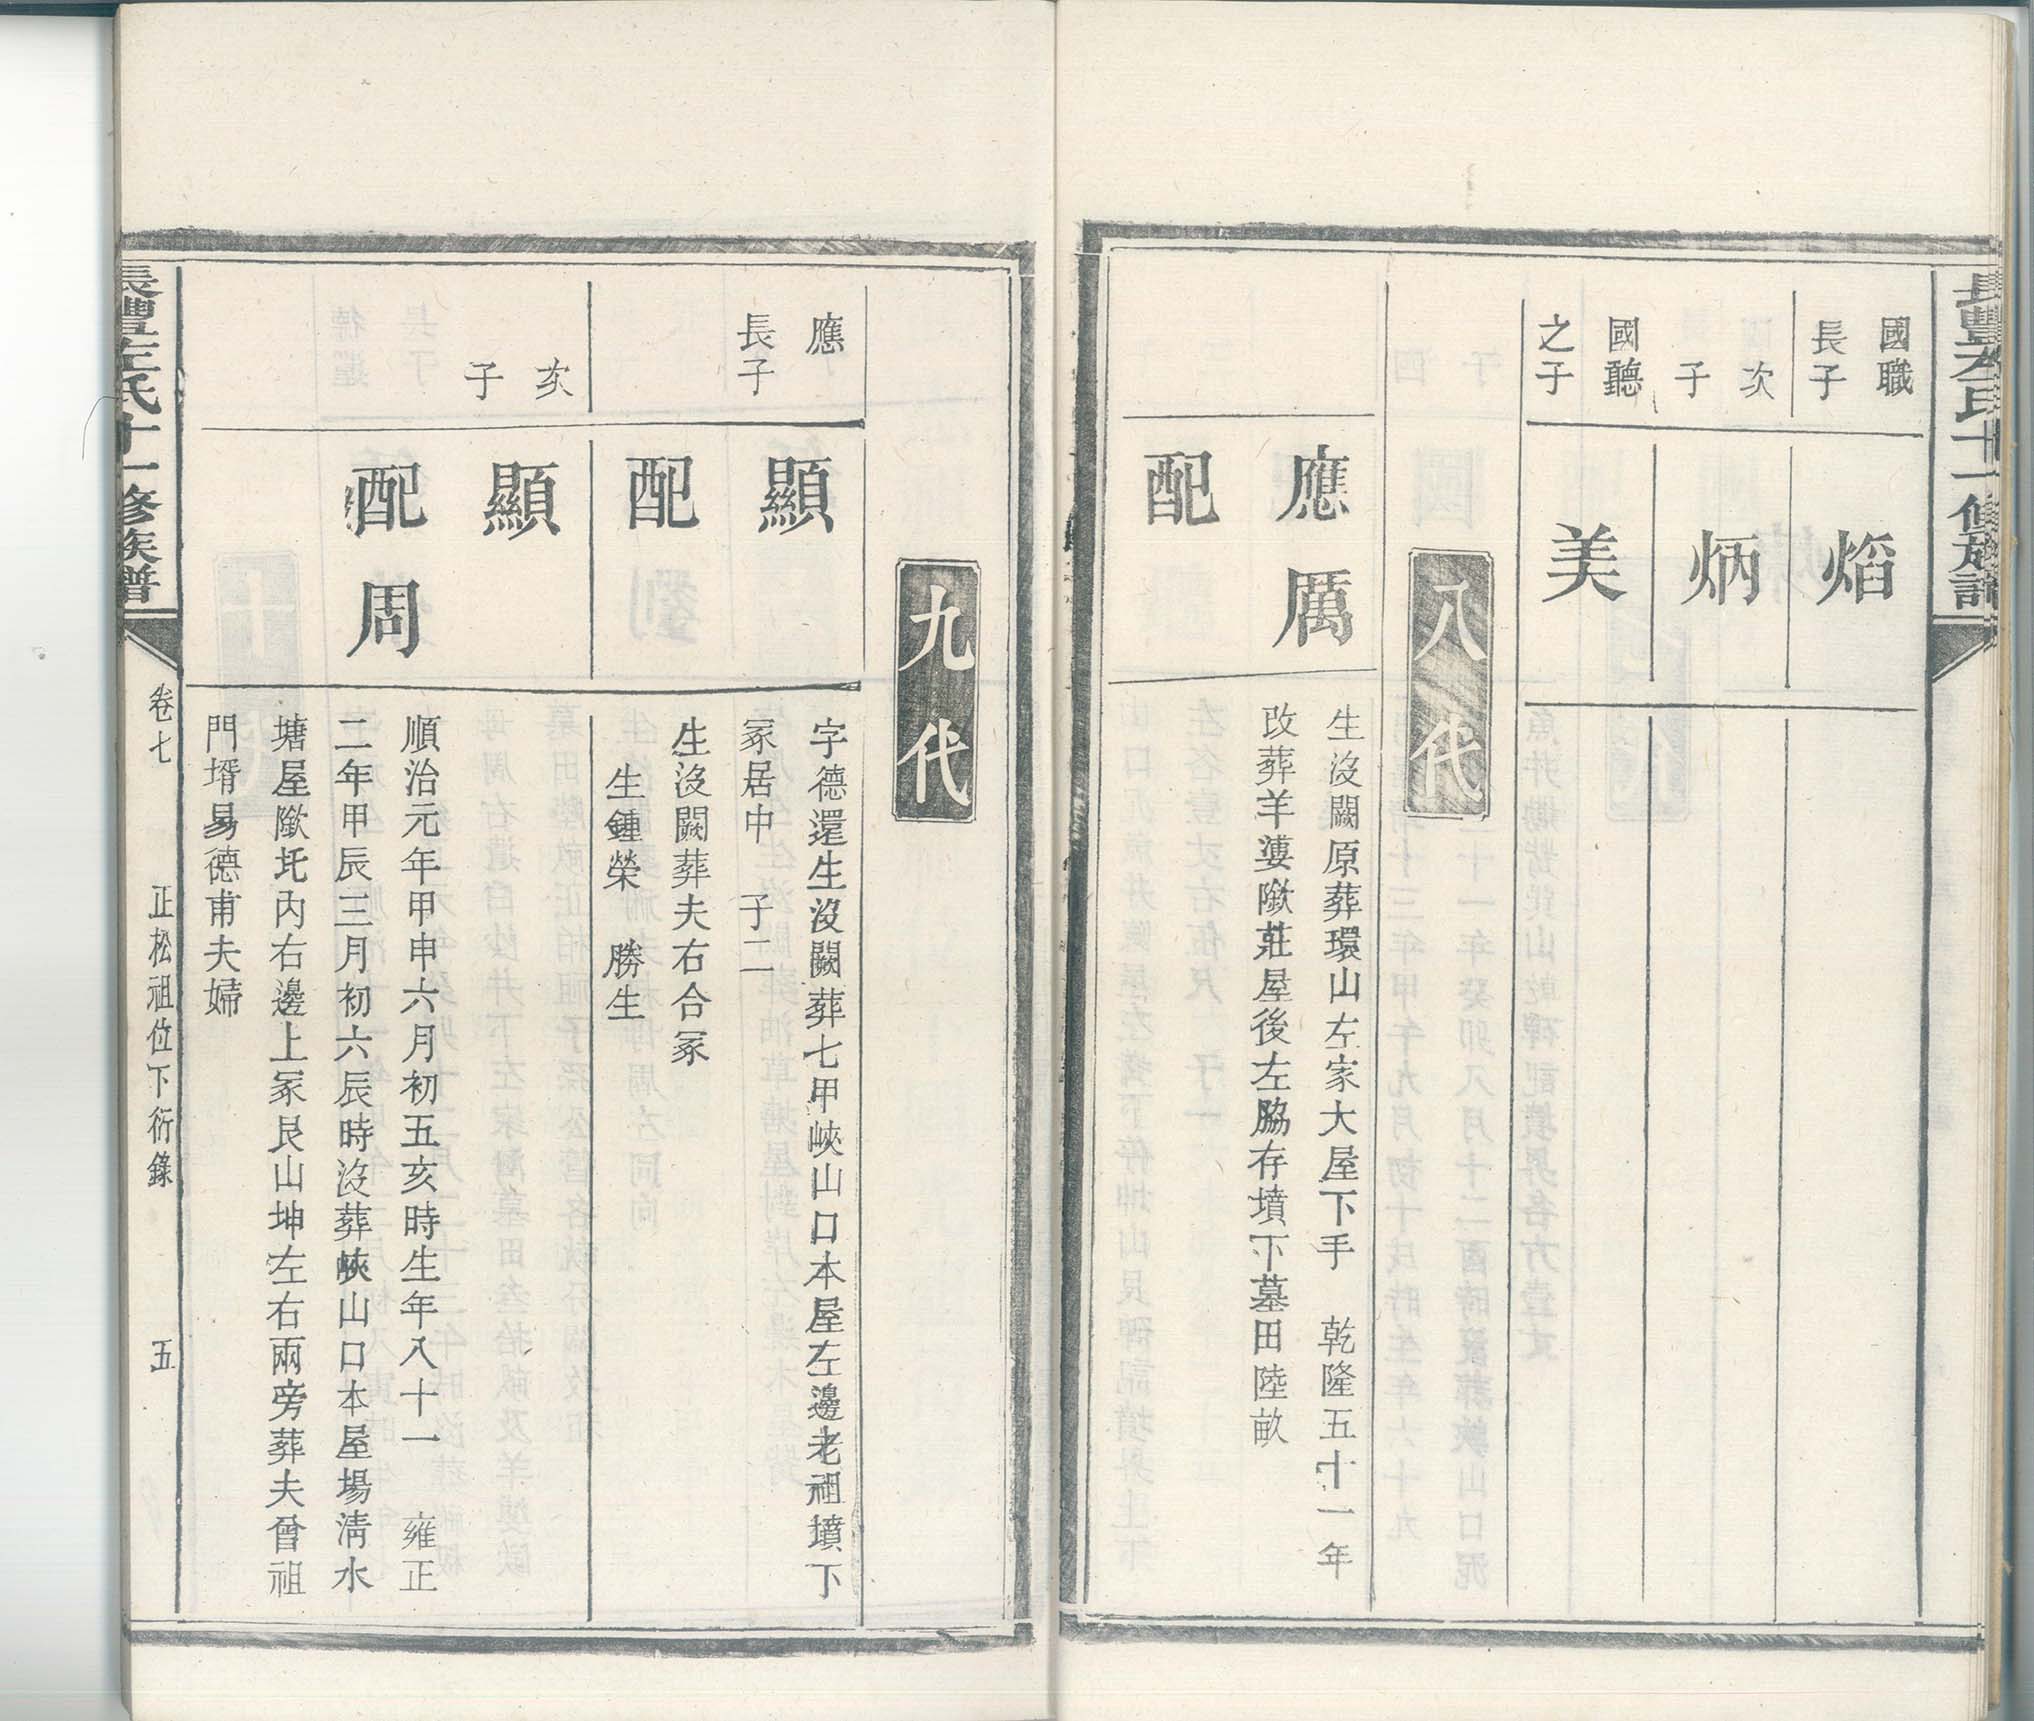 國職
長子
焰
次
子
炳
國聽
之子
美
八代
應厲
配
生沒闕原葬環山左家大屋下手　乾隆五十一年
改葬羊婆㘓莊屋後左脇存墳下墓田陸畝
九代
應
長子
顯
配
字德還生沒闕葬七甲峽山口本屋左邊老祖墳下
冢居中　子二
生沒闕葬夫右合冢
生鍾榮　勝生
次
子
顯
配周
順治元年甲申六月初五亥時生年八十一　雍正
二年甲辰三月初六辰時沒葬峽山口本屋場清水
塘屋坨內右邊上冢艮山坤左右兩旁葬夫曾祖
門壻易德甫夫婦
長豐左氏十一修族譜
卷七
正松祖位下衍錄
五